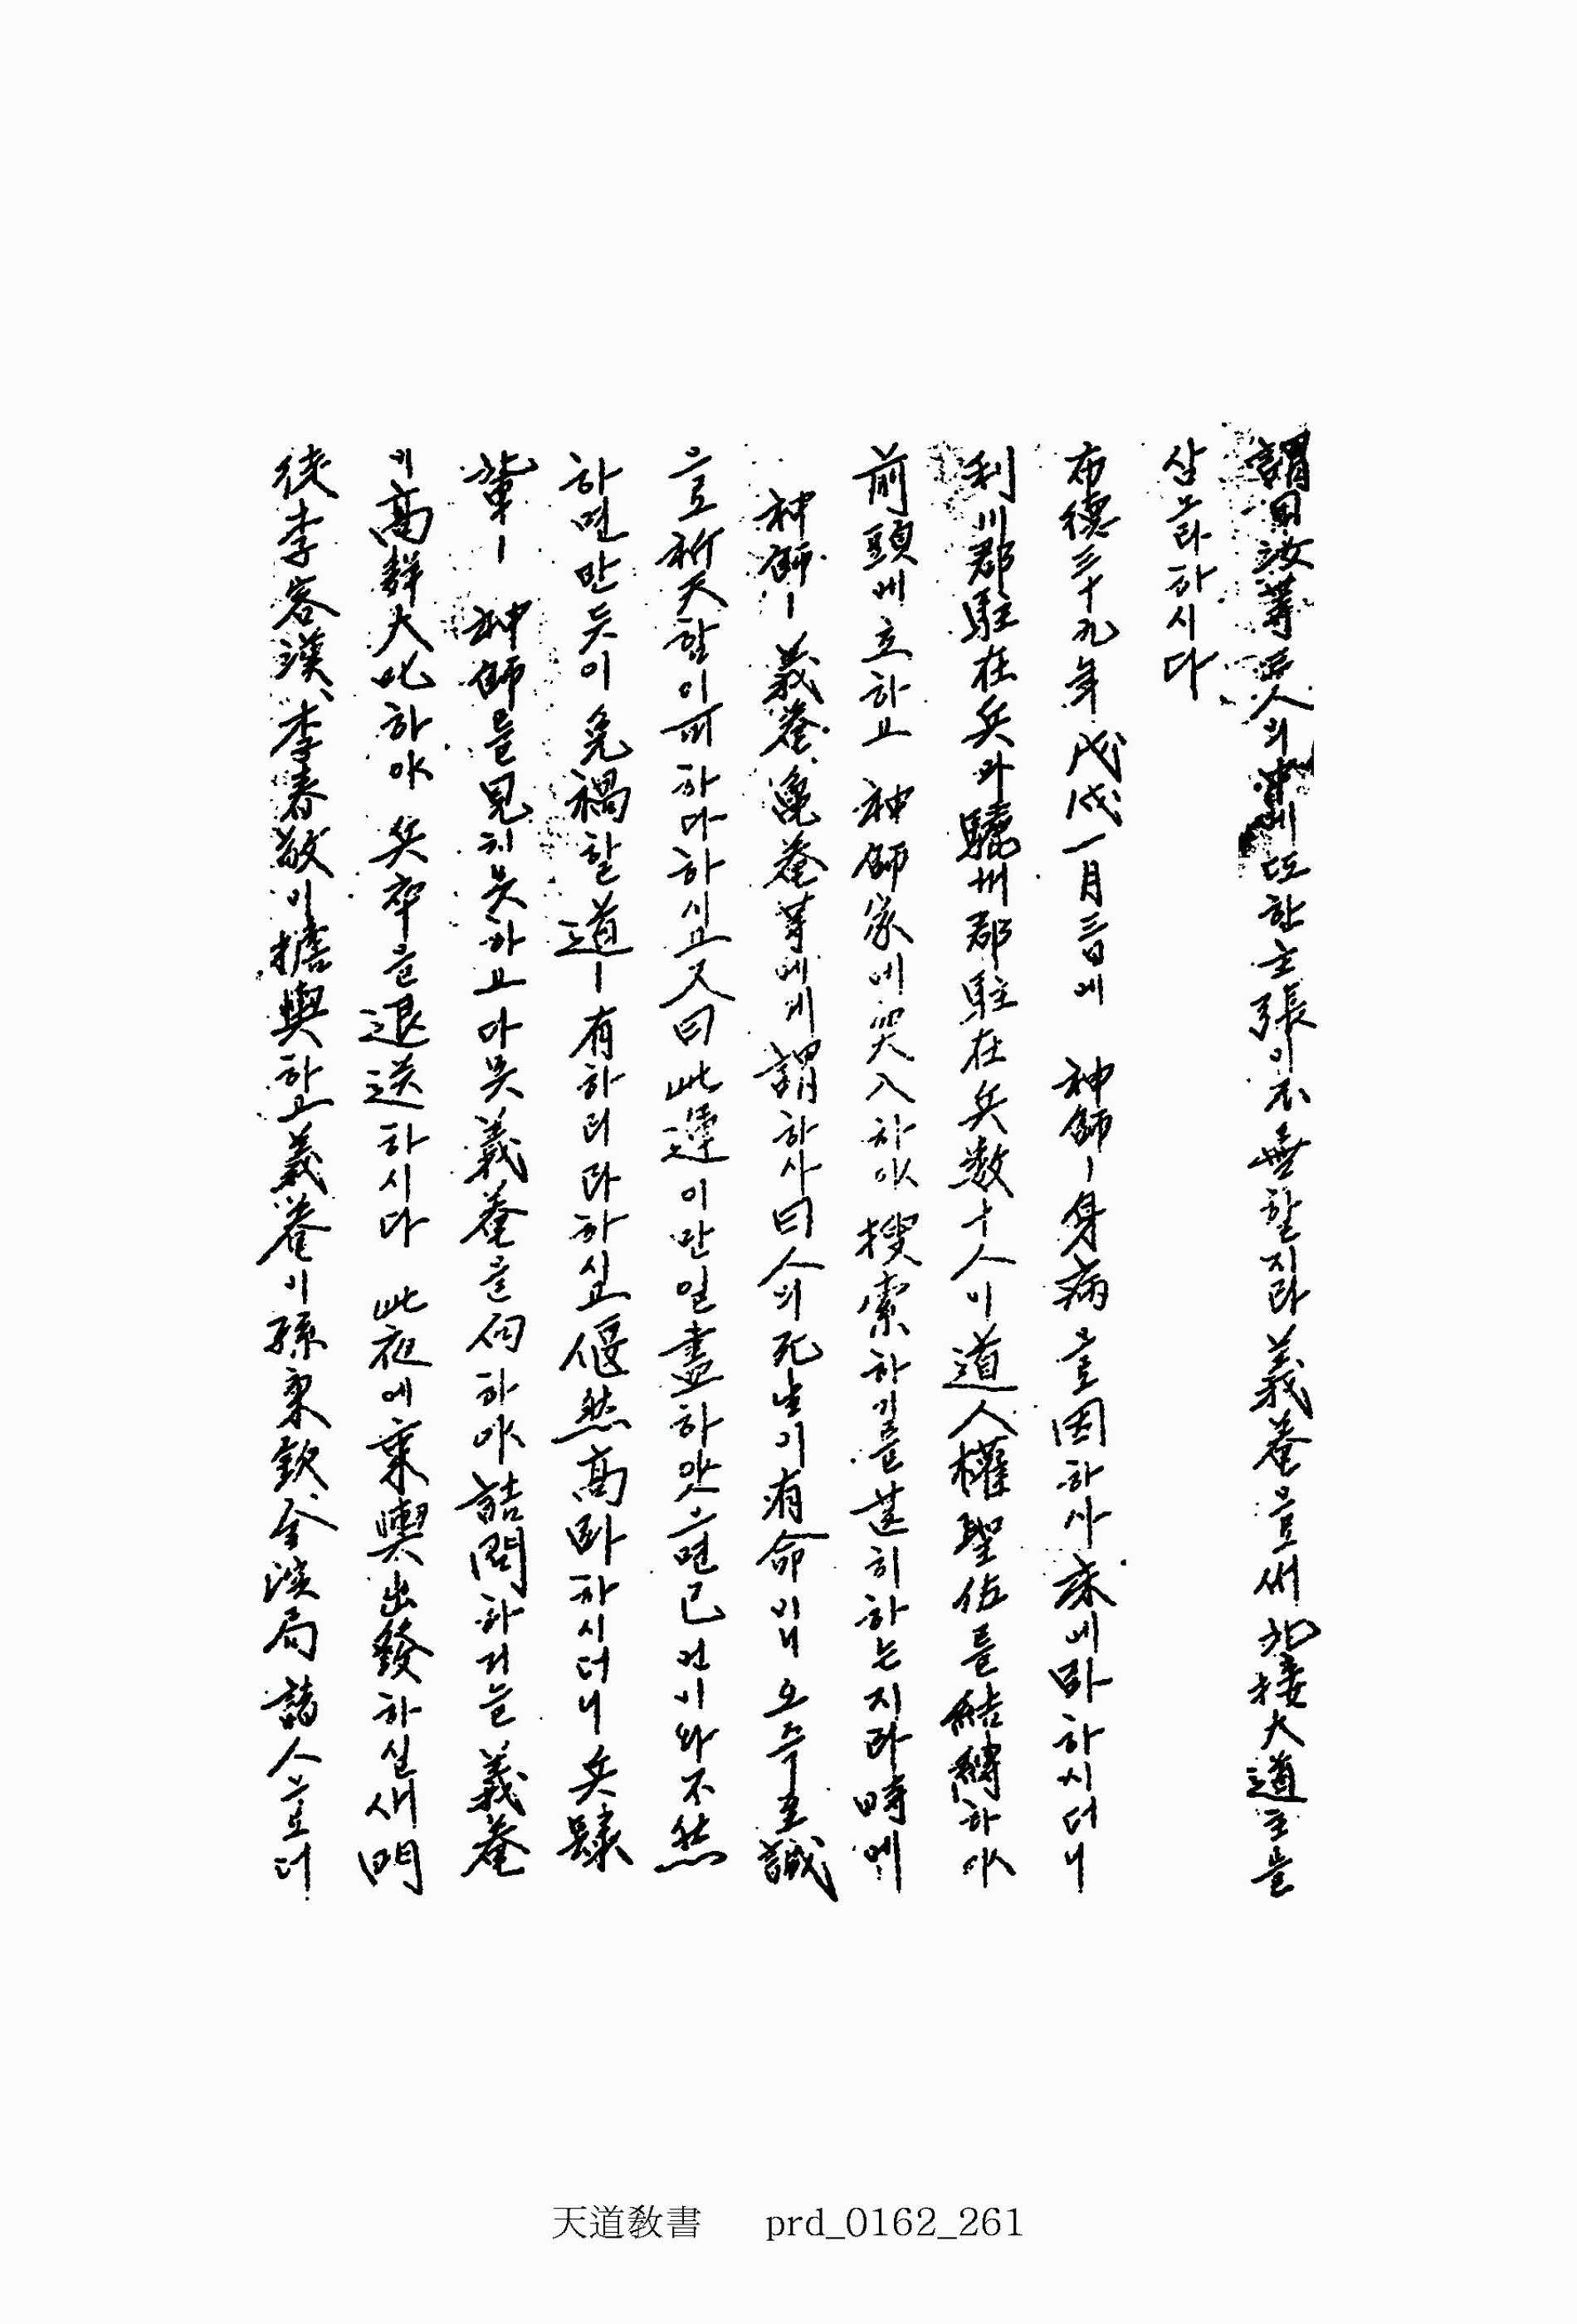 謂曰汝等三人의 中에 또한 主張이 不無할지라 義菴으로써 北接大道主를
삼으라 하시다
布德三十九年戊戌一月三日에 神師ㅣ 身病을 因하사 床에 臥하시더니
利川郡駐在兵과 驪州郡駐在兵數十人이 道人權聖佐를 結縛하야
前頭에 立하고 神師家에 突入하야 搜索하기를 甚히 하는지라 時에
神師ㅣ 義菴、龜菴等에게 謂하사曰 人의 死生이 有命이니 오즉 至誠
으로 祈天함이 可하다 하시고 又曰 此運이 만일 盡하얏으면 已언이와 不然
하면 반듯이 免禍할 道ㅣ 有하리라 하시고 偃然高臥하시더니 兵隷
輩ㅣ 神師를 見치 못하고 다못 義菴을 向하야 詰問하거늘 義菴
이 高聲大叱하야 兵卒을 退送하시다 此夜에 乘輿出發하실새 門
徒李容漢、李春敬이 擔輿하고 義菴이 孫秉欽、金演局諸人으로더
天道敎書 prd_0162_261